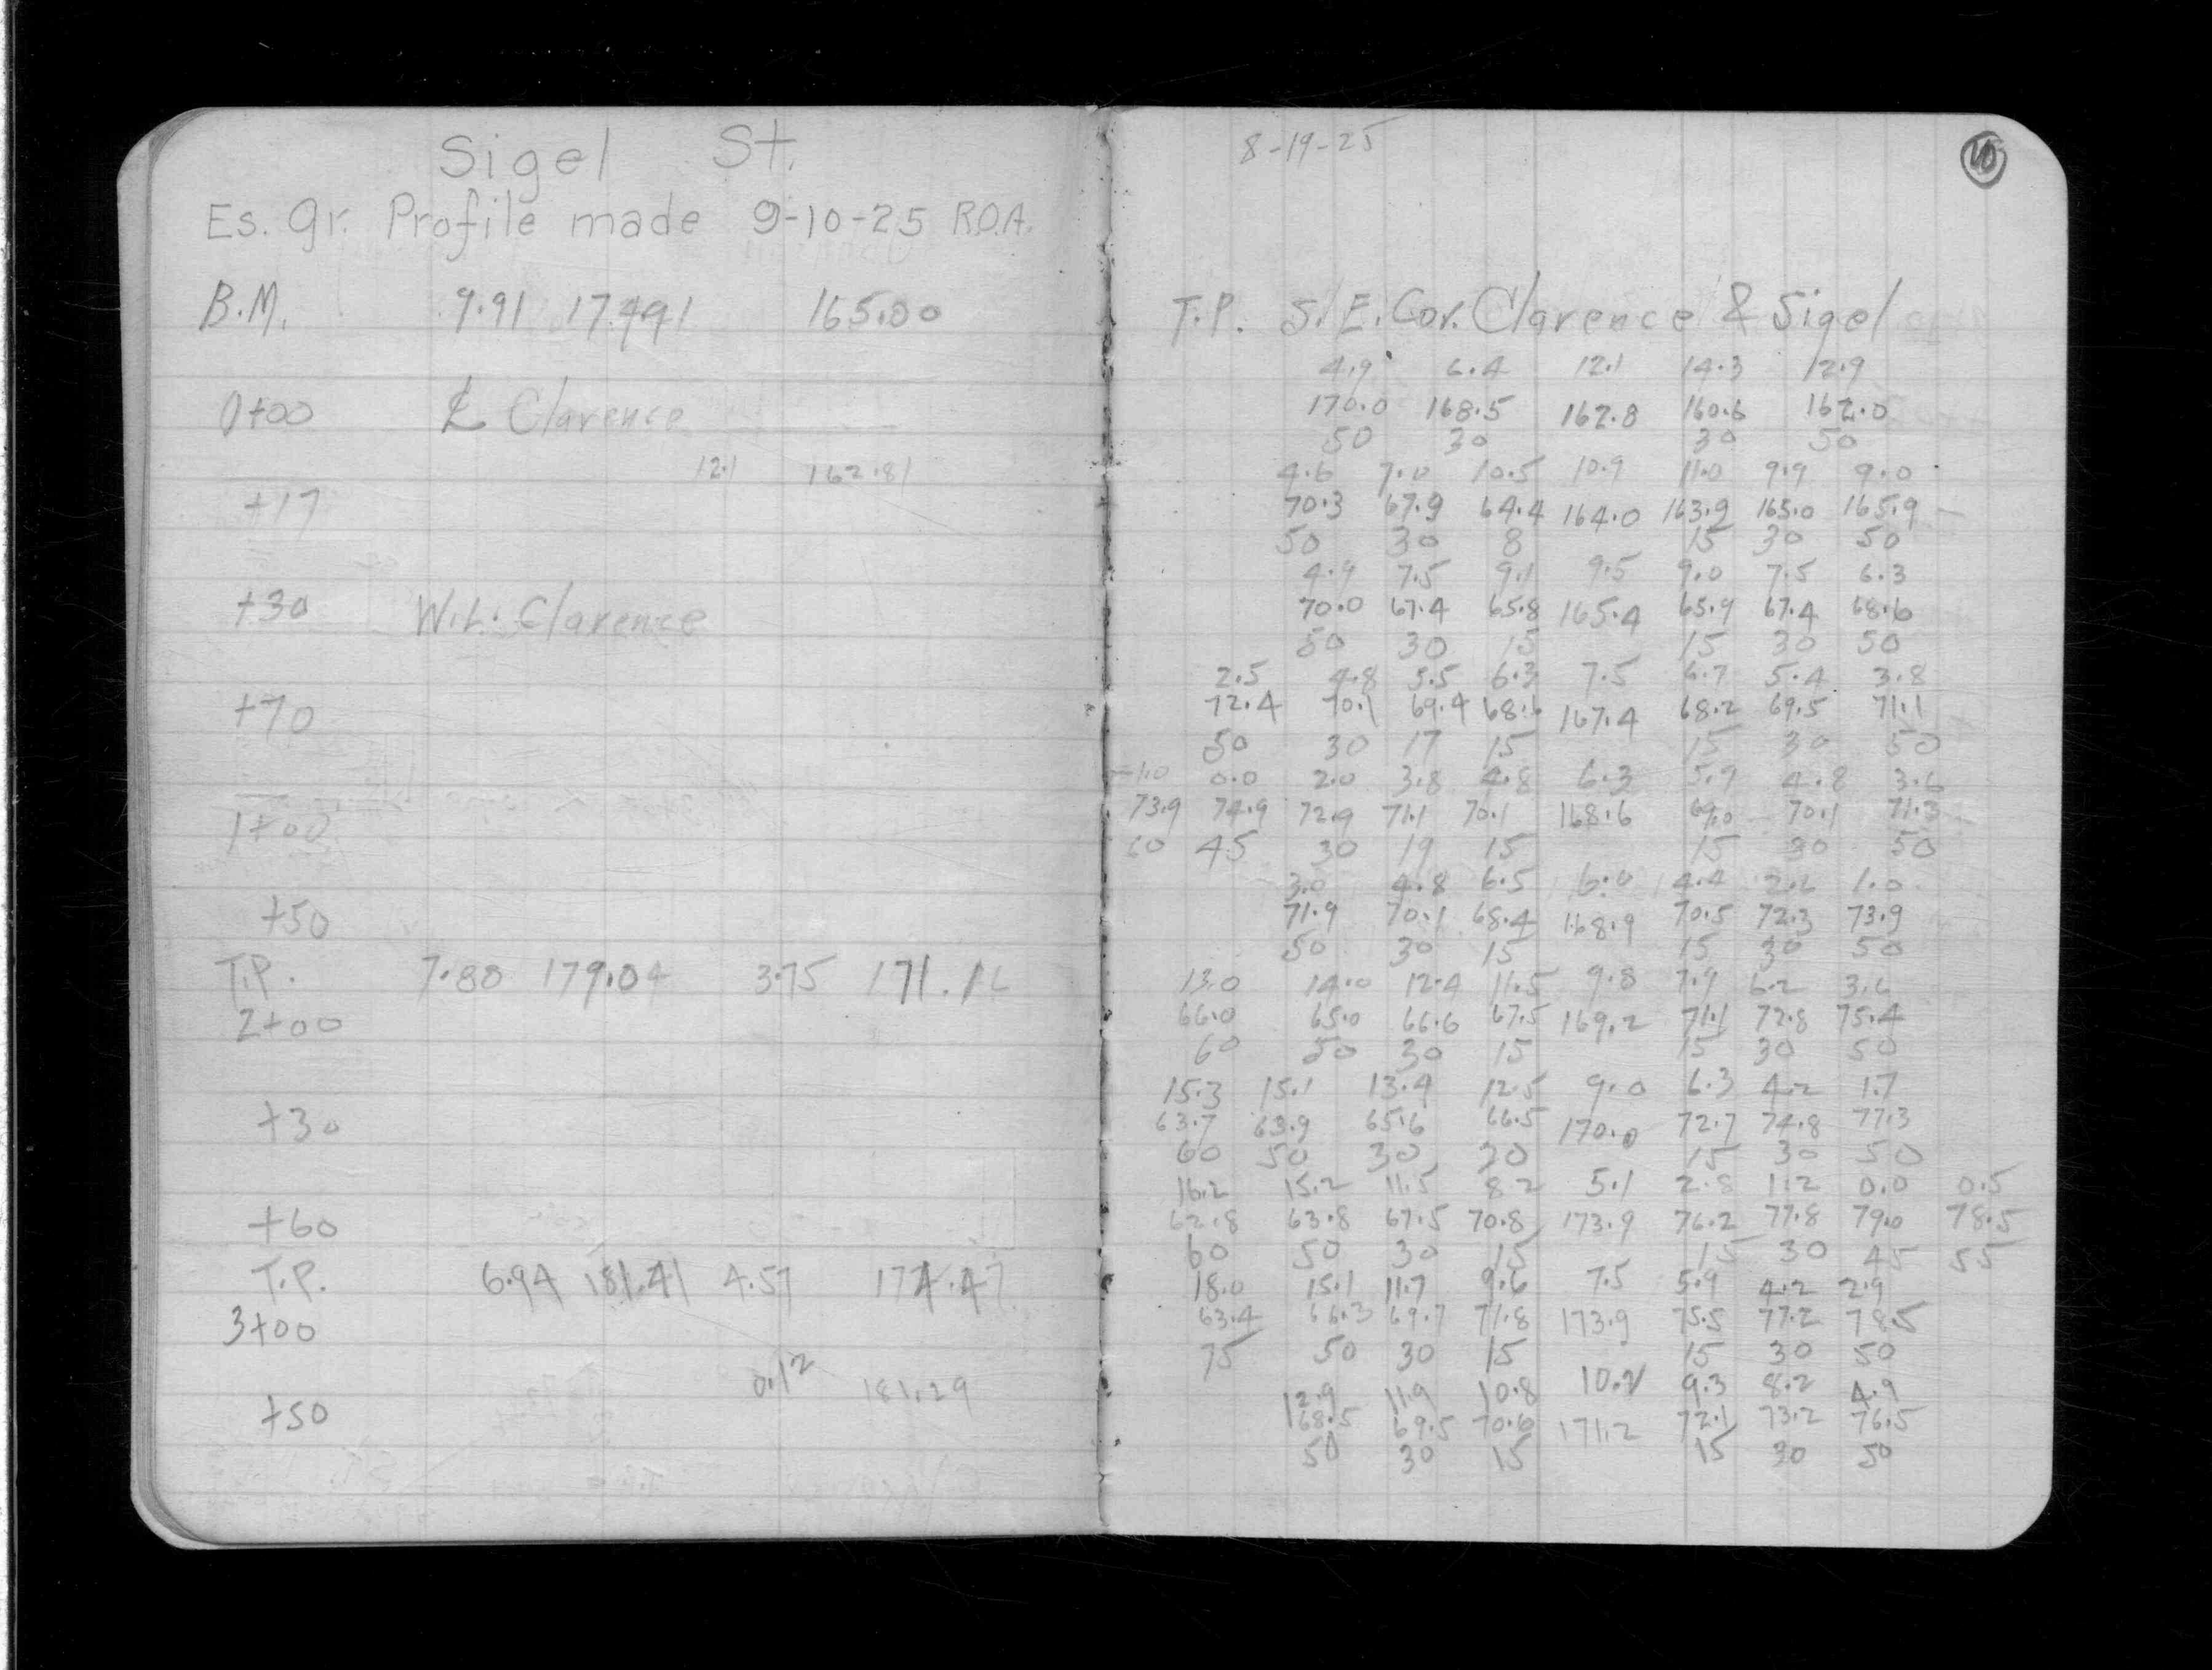 Sigel St.
Es. gr. Profile made 9-10-25 R.O.A.
B.M. 9.91 174.91 165.00
0+00 ℄ Clarence
12.1 162.81
+17
+30 W.L. Clarence
+70
1+00
+50
T.P. 7.80 179.04 3.75 171.16
2+00
+30
+60
T.P. 6.94 181.41 4.57 174.47
3+00
0.12 181.29
+50
8-19-25
10
T.P. S.E. Cor. Clarence & Sigel
4.9 6.4 12.1 14.3 12.9
170.0 168.5 162.8 160.6 162.0
50 30 30 50
4.6 7.0 10.5 10.9 11.0 9.9 9.0
70.3 67.9 64.4 164.0 163.9 165.0 165.9
50 30 8 15 30 50
4.9 7.5 9.1 9.5 9.0 7.5 6.3
70.0 67.4 65.8 165.4 65.9 67.4 68.6
50 30 15 15 30 50
2.5 4.8 5.5 6.3 7.5 6.7 5.4 3.8
72.4 70.1 69.4 68.6 167.4 68.2 69.5 71.1
50 30 17 15 15 30 50
-1.0 0.0 2.0 3.8 4.8 6.3 5.9 4.8 3.6
73.9 74.9 72.9 71.1 70.1 168.6 69.0 70.1 71.3
60 45 30 19 15 15 30 50
3.0 4.8 6.5 6.0 4.4 2.6 1.0
71.9 70.1 68.4 168.9 70.5 72.3 73.9
50 30 15 15 30 50
13.0 14.0 12.4 11.5 9.8 7.9 6.2 3.6
66.0 65.0 66.6 67.5 169.2 71.1 72.8 75.4
60 50 30 15 15 30 50
15.3 15.1 13.4 12.5 9.0 6.3 4.2 1.7
63.7 63.9 65.6 66.5 170.0 72.7 74.8 77.3
60 50 30 20 15 30 50
16.2 15.2 11.5 8.2 5.1 2.8 1.2 0.0 0.5
62.8 63.8 67.5 70.8 173.9 76.2 77.8 79.0 78.5
60 50 30 15 15 30 45 55
18.0 15.1 11.7 9.6 7.5 5.9 4.2 2.9
63.4 66.3 69.7 71.8 173.9 75.5 77.2 78.5
75 50 30 15 15 30 50
12.9 11.9 10.8 10.2 9.3 8.2 4.9
168.5 69.5 70.6 171.2 72.1 73.2 76.5
50 30 15 15 30 50